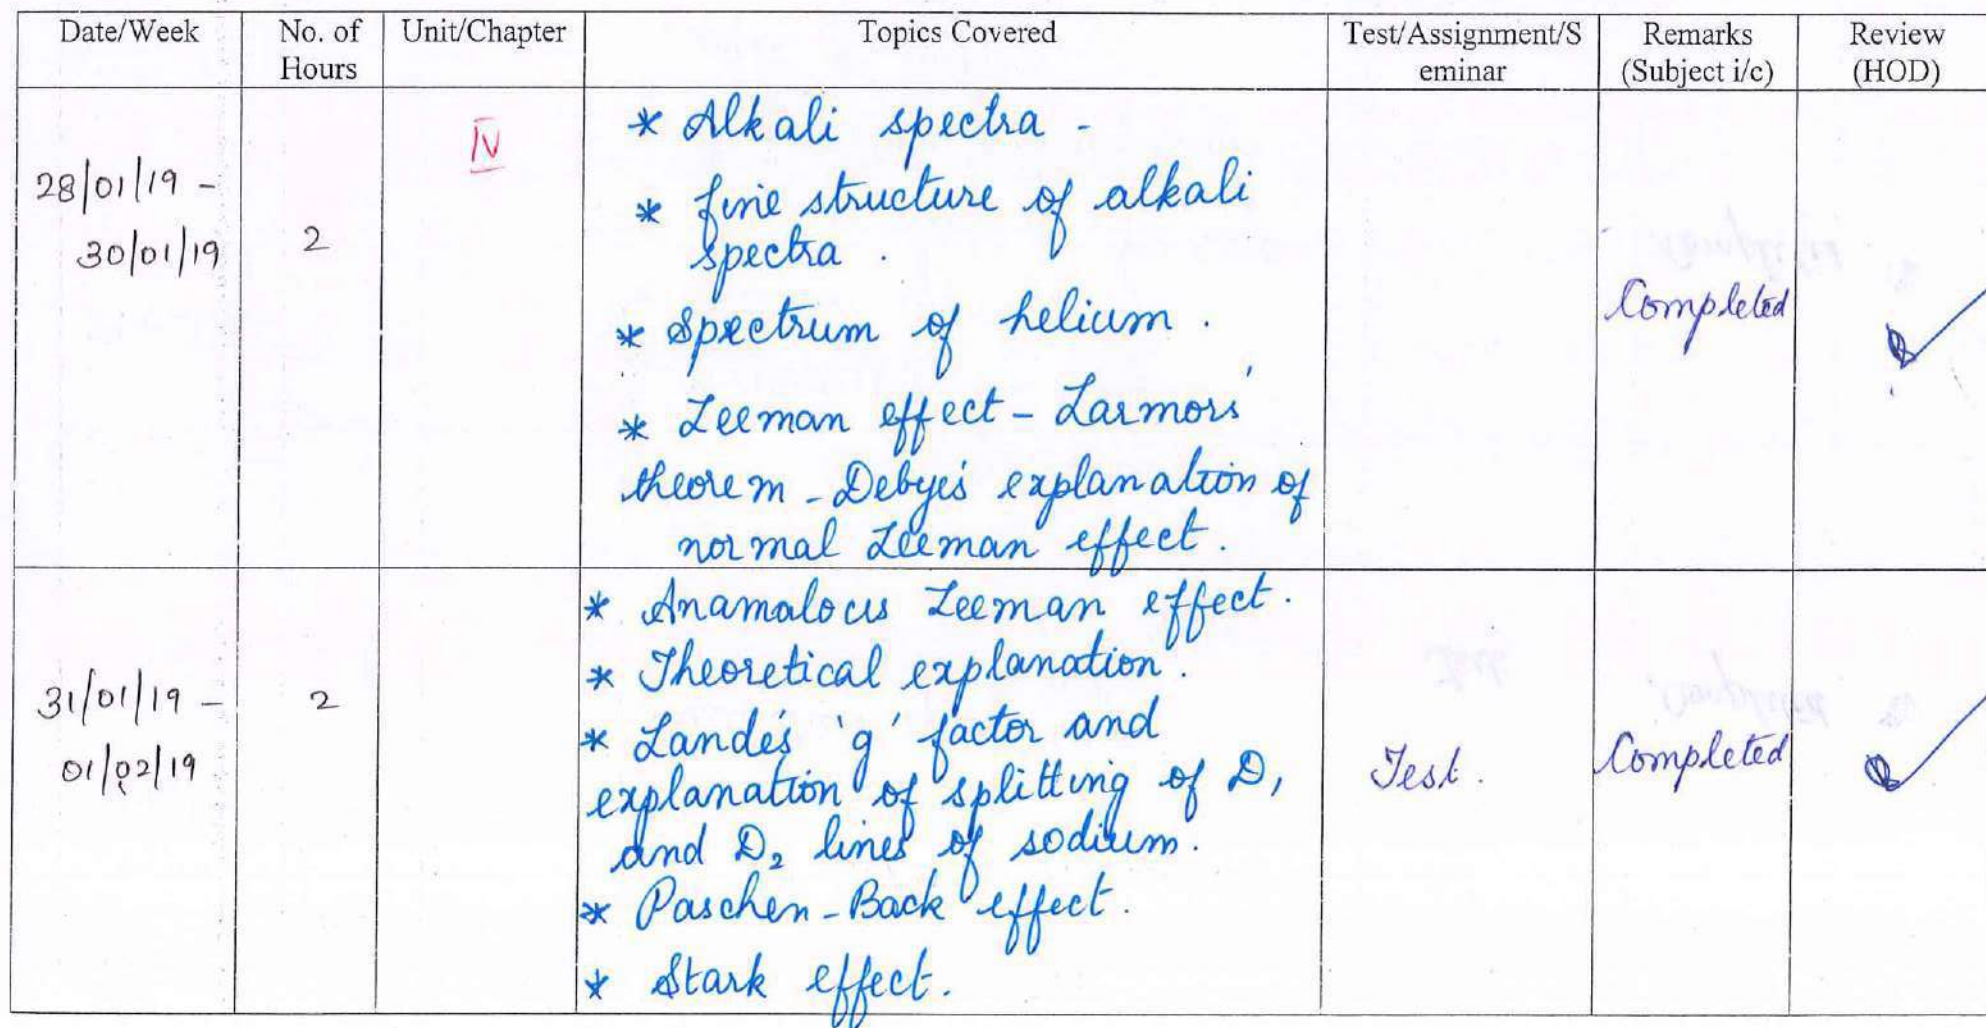 Date/Week No. of Hours Unit/Chapter Topics Covered Test/Assignment/S eminar Remarks (Subject i/c) Review (HOD)
28/01/19 -
30/01/19
2
IV
* Alkali spectra -
* fine structure of alkali
spectra .
* Spectrum of helium .
* Zeeman effect - Larmors'
theorem - Debye's explanation of
normal Zeeman effect .
Completed
31/01/19 -
01/02/19
2
* Anamalous Zeeman effect .
* Theoretical explanation .
* Lande's 'g' factor and
explanation of splitting of D1
and D2 lines of sodium .
* Paschen - Back effect .
* Stark effect .
Test .
Completed